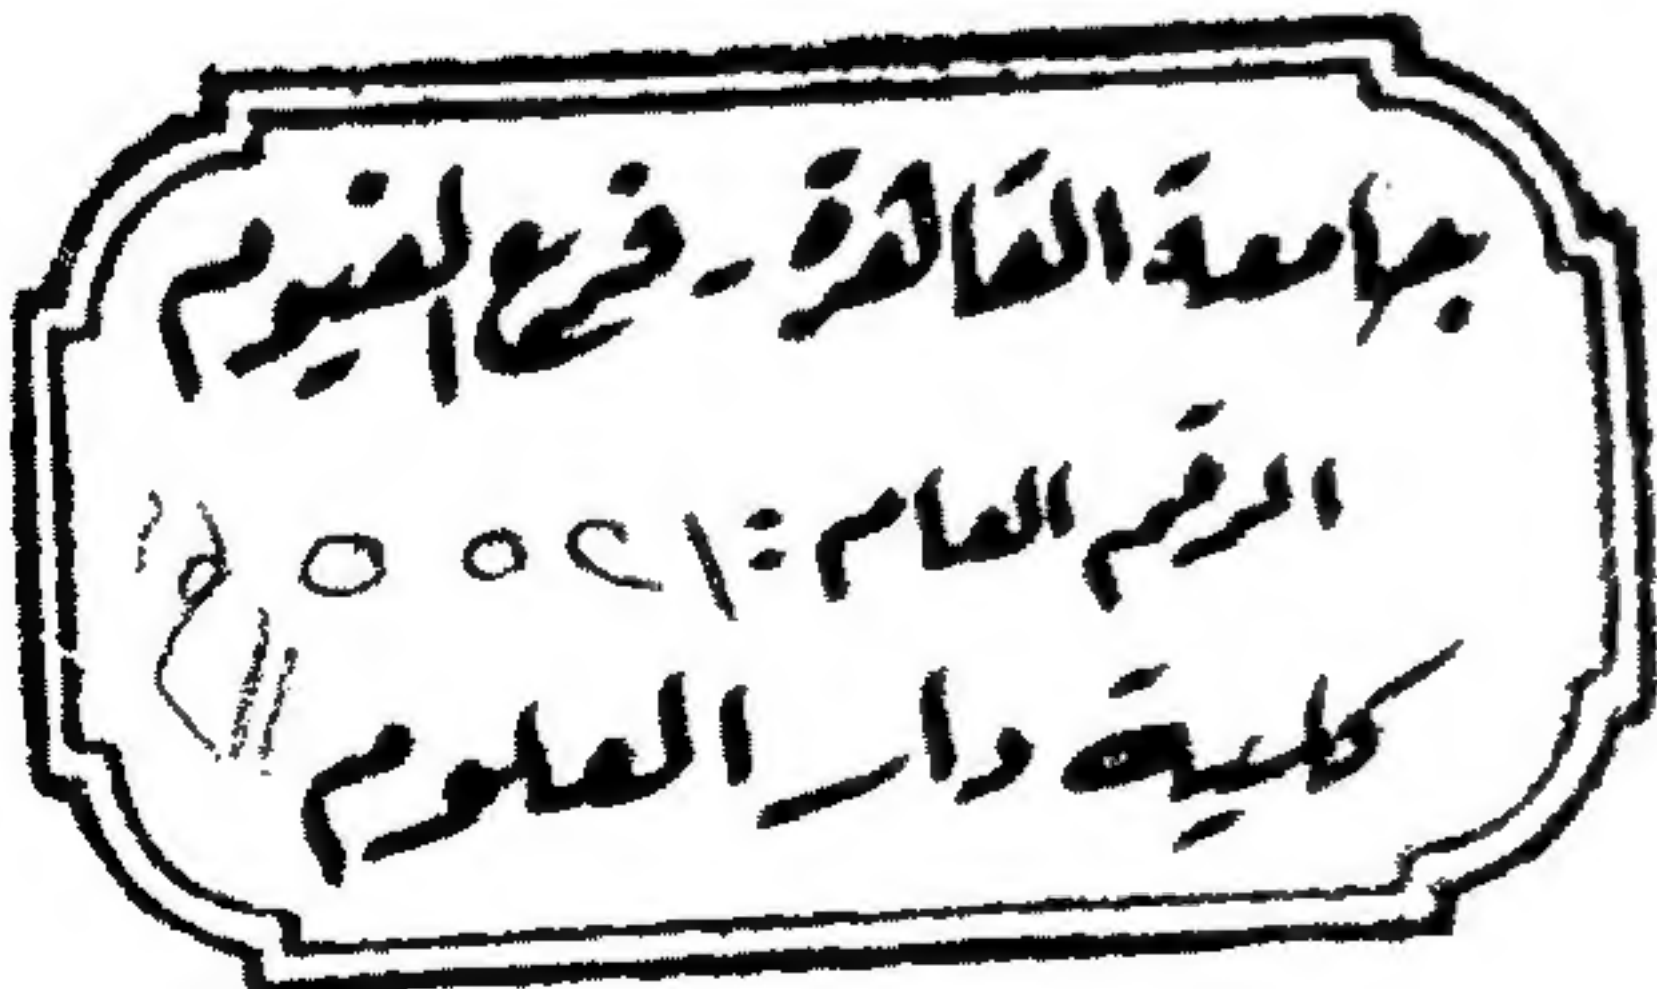 جامعة القاهرة - فرع الفيوم
الرقم العام :
كلية دار العلوم